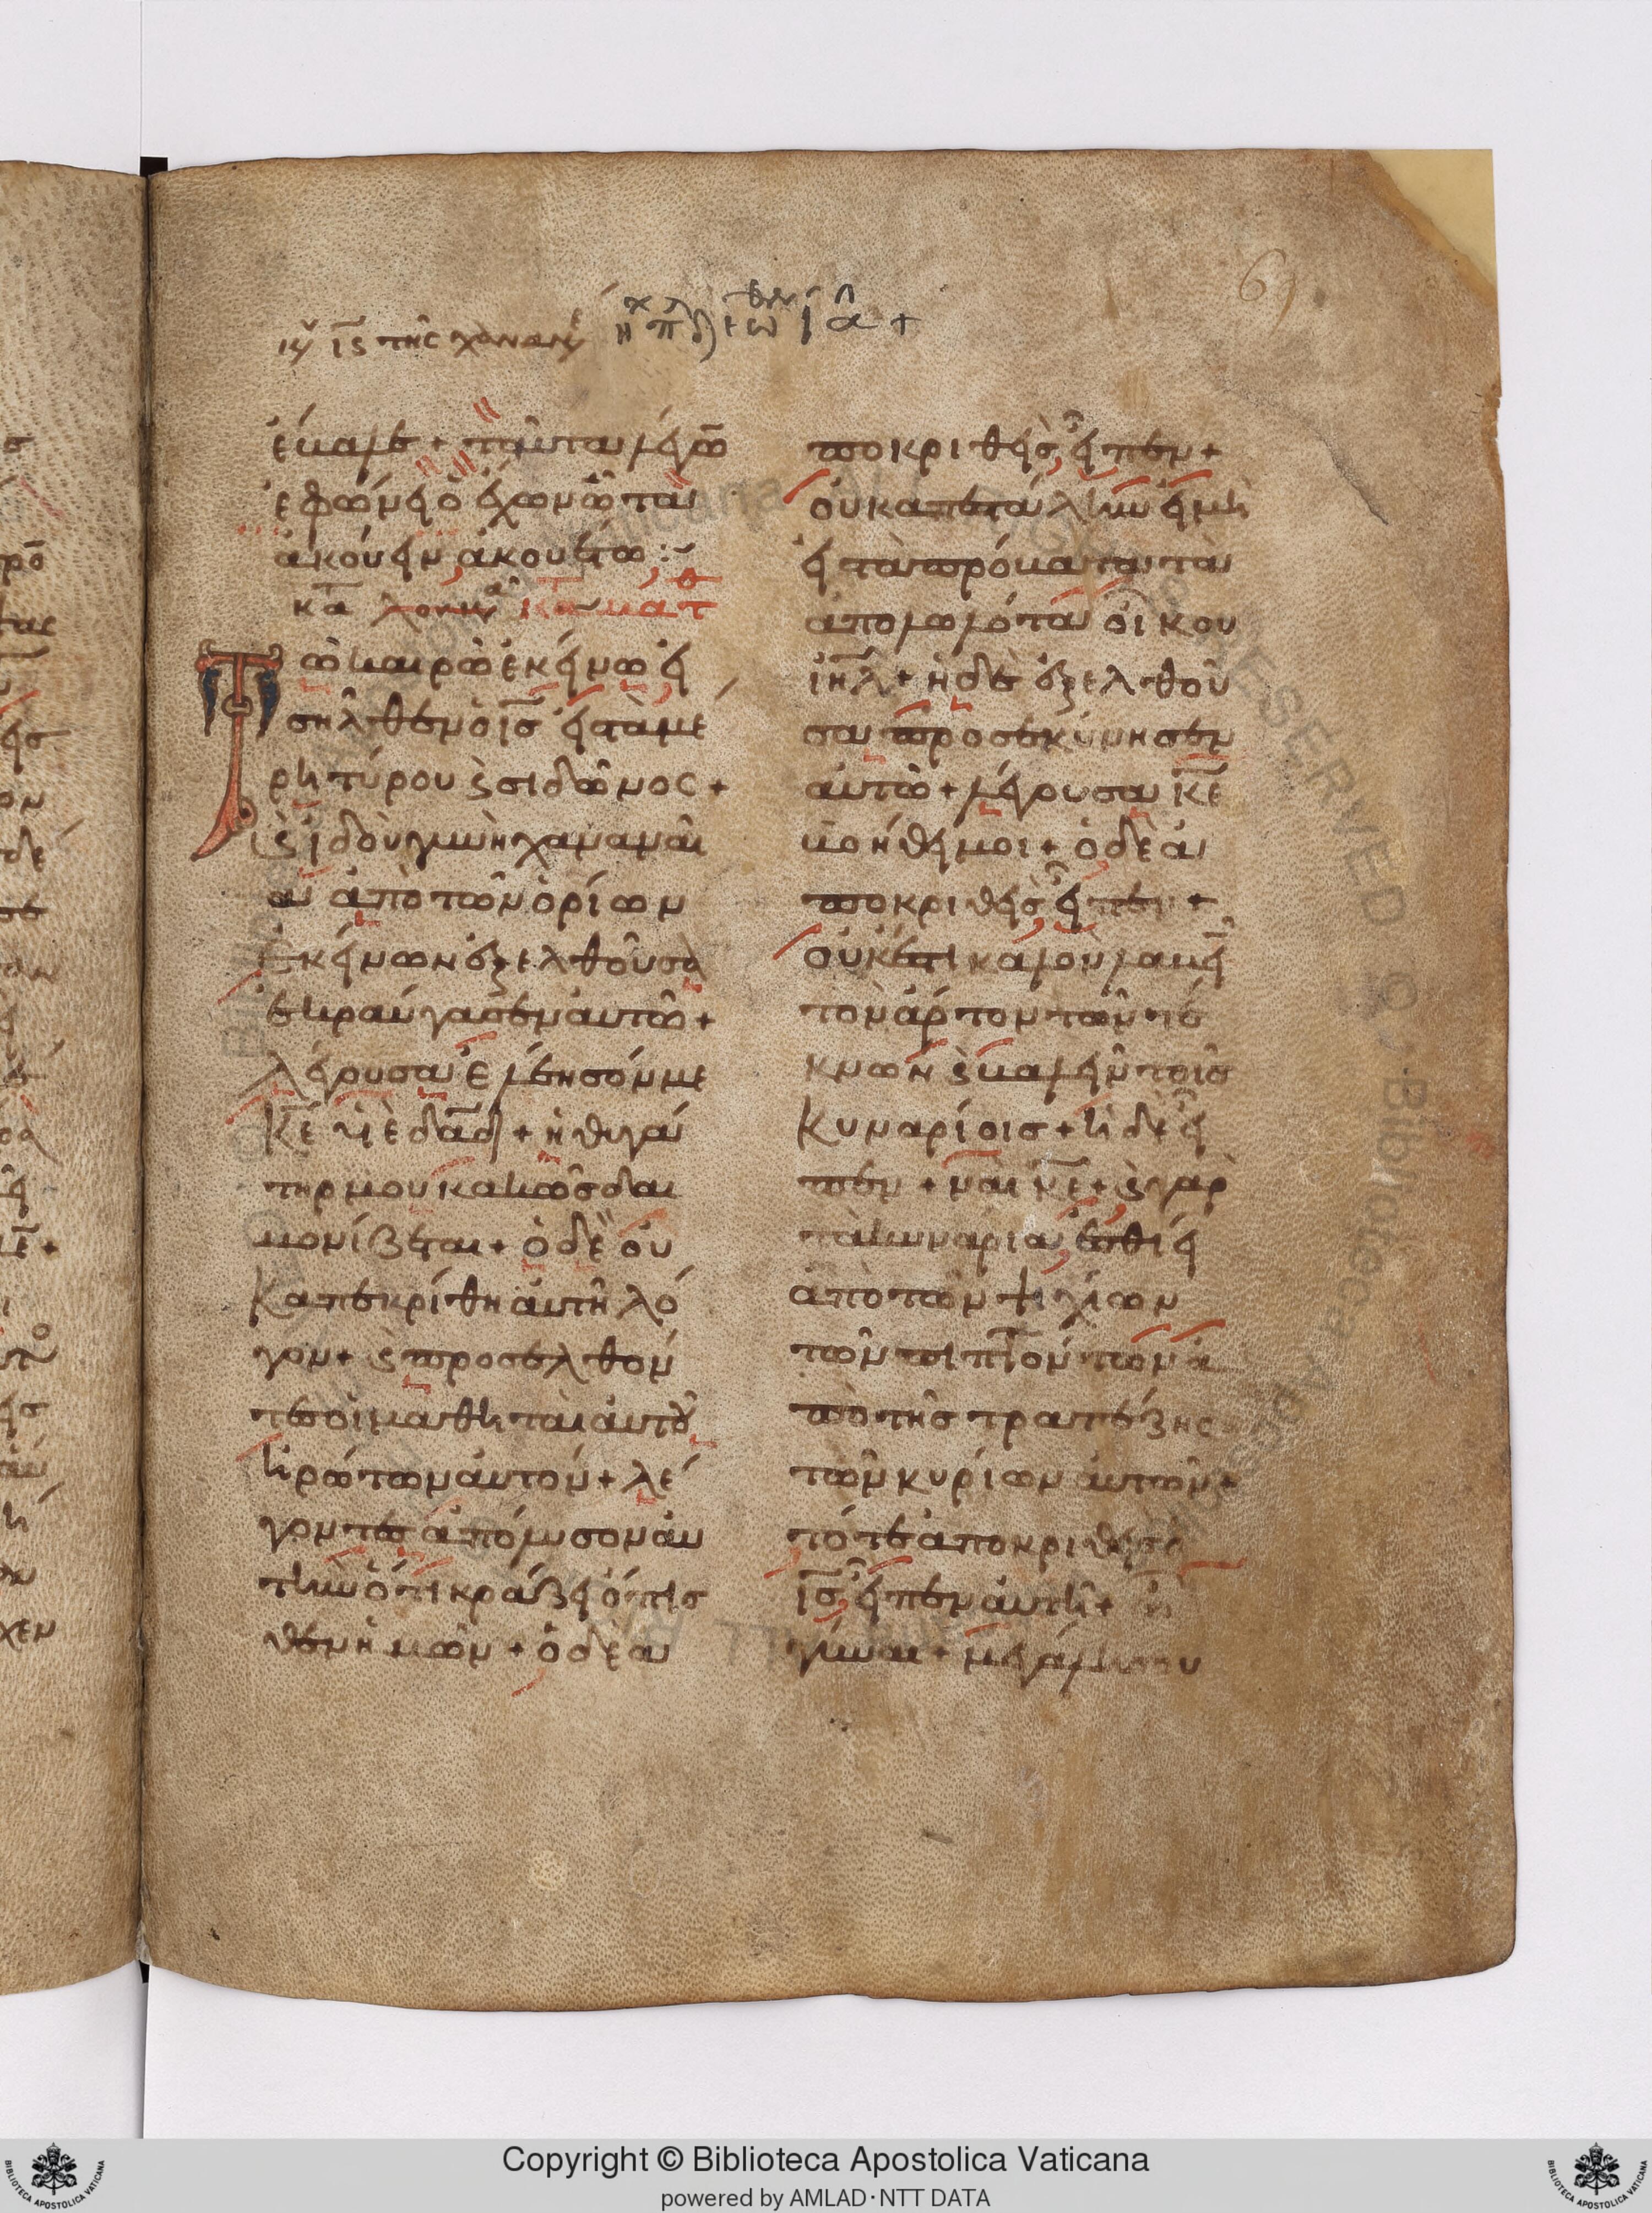 69
κυ ιζ της χαναναι
ἐκαλε + ταῦτα λέγω̅
ἐφώνει ὁ ἔχων ὦτα
ἀκούειν ἀκουέτω :~
κατ μάτθ
Τῶ καιρῶ ἐκείνω εἰ
σῆλθεν ὁ ις̅ εἰς τὰ μέ
ρη τύρου ϛ σιδῶνος +
ϛ ἰδοὺ γυνὴ χαναναί
α ἀπὸ τῶν ὁρίων
ἐκείνων ἐξελθοῦσα
ἐκραύγασεν αὐτῶ +
λέγουσα ἐλέησόν με
κε̅ υἱὲ δαδ̅ + ἡ θυγά
τηρ μου κακῶς δαι
μονίζεται + ὁ δὲ οὐ
κ ἀπεκρίθη αὐτῆ λό
γον + ϛ προσελθόν
τες οἱ μαθηταὶ αὐτοῦ
ἠρώτων αὐτόν + λέ
γοντες ἀπόλυσον αὐ
τὴν ὅτι κράζει ὄπισ
θεν ἡμῶν + ὁ δὲ α
ποκριθεὶς εἶπεν +
οὐκ ἀπεστάλην εἰ μὴ
εἰ τὰ πρόβατα τὰ
ἀπολωλότα οἴκου
ιηλ̅ + ἡ δὲ ἐξελθοῦ
σα προσεκύνησεν
αὐτῶ + λέγουσα κε̅
βοήθει μοι + ὁ δὲ ἀ
ποκριθεὶς εἶπεν +
οὐκ ἔστι καλὸν λαβεῖ
τὸν ἄρτον τῶν τέ
κνων ϛ βαλεῖν τοῖς
κυναρίοις + ἡ δὲ εἶ
πεν + ναὶ κε̅ + ϛ γὰρ
τὰ κυνάρια ἐσθίει
ἀπὸ τῶν ψιχίων
τῶν πιπτόντων ἀ
πὸ τῆς τραπέζης
τῶν κυρίων αὐτῶν +
τότε ἀποκριθεὶς ὁ
ις̅ εἶπεν αὐτῆ + ὦ
γύναι + μεγάλη σου
Copyright © Biblioteca Apostolica Vaticana
powered by AMLAD·NTT DATA